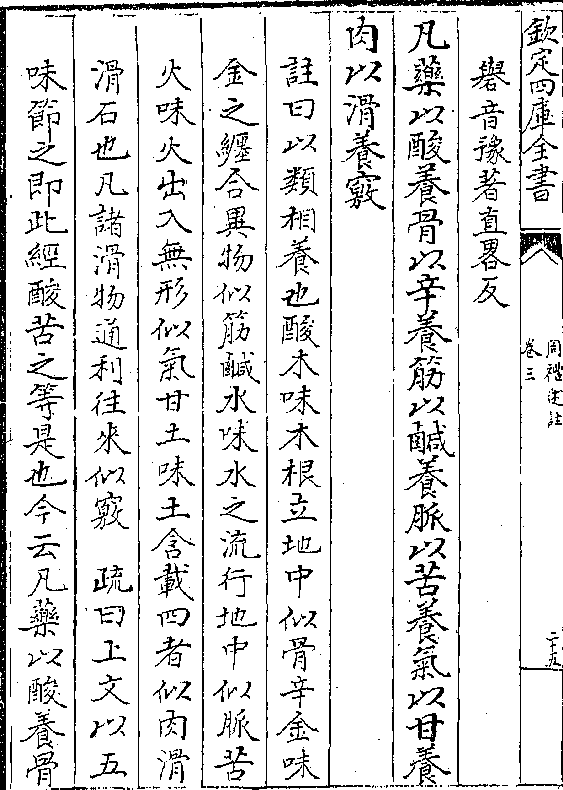 欽定四庫全書
周禮述註
卷三
二十五
礜音豫著直畧反
凡藥以酸養骨以辛養筋以鹹養脈以苦養氣以甘養
肉以滑養竅
註曰以類相養也酸木味木根立地中似骨辛金味
金之纒合異物似筋鹹水味水之流行地中似脈苦
火味火出入無形似氣甘土味土含載四者似肉滑
滑石也凡諸滑物通利往來似竅　疏曰上文以五
味節之即此經酸苦之等是也今云凡藥以酸養骨